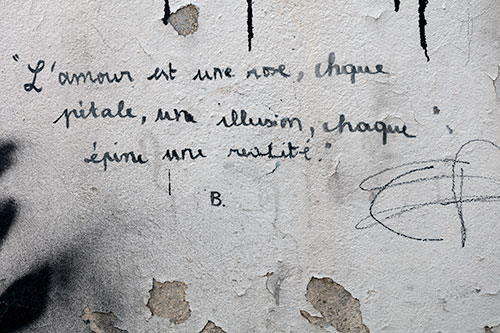 "L'amour est une rose, chque
pétale, une illusion, chaque",
épine une realité."
B.